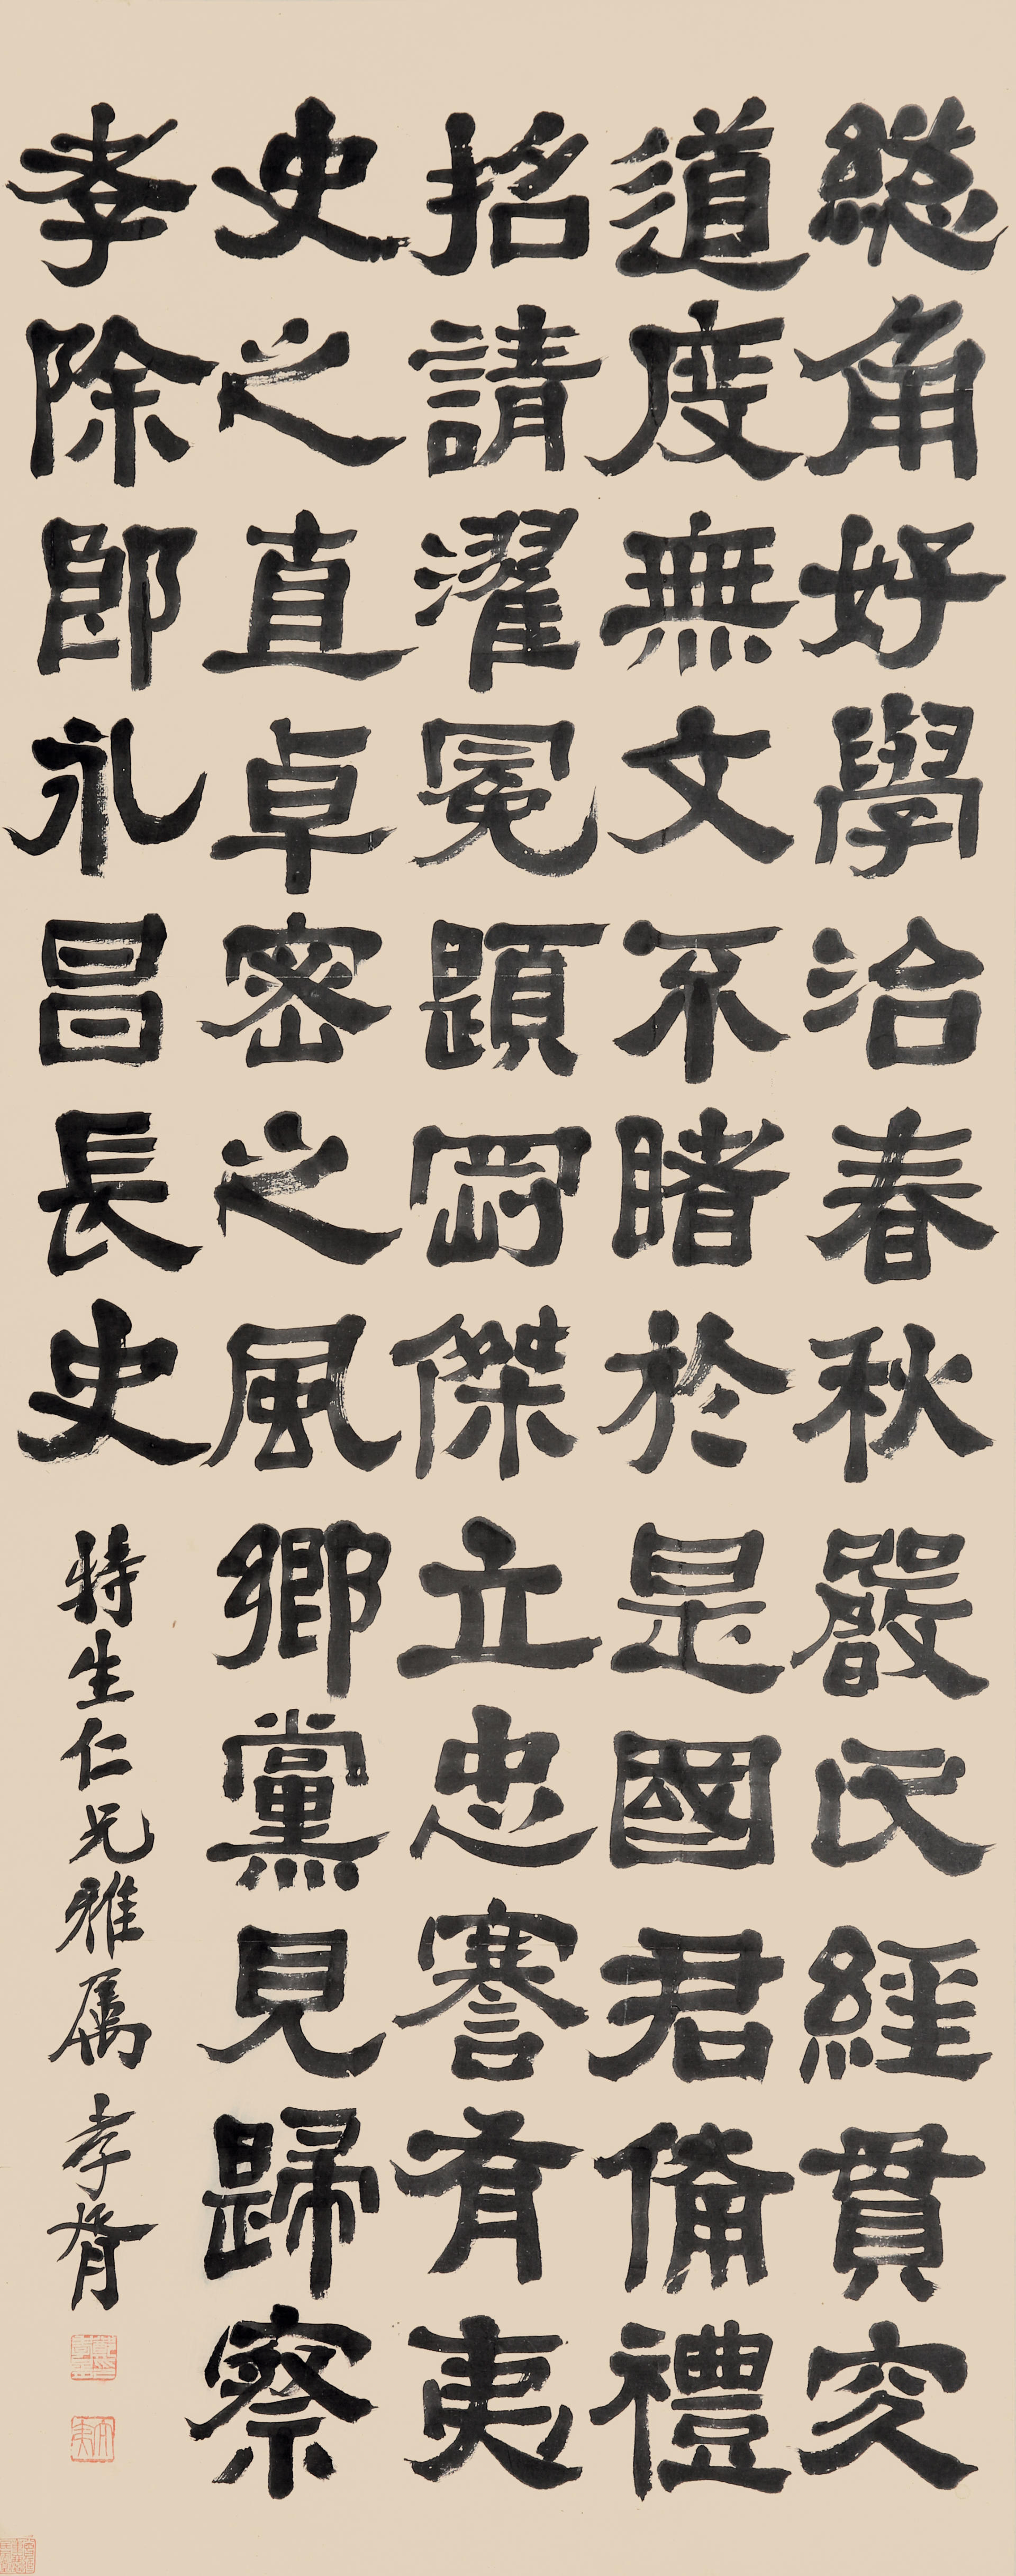 緫角好學治春秋嚴氏經貫究
道度無文不睹於是國君備禮
招請濯冕題剛傑立忠謇有夷
史之直卓密之風鄉黨見歸察
孝除郎永昌長史
特生仁兄雅屬 孝胥